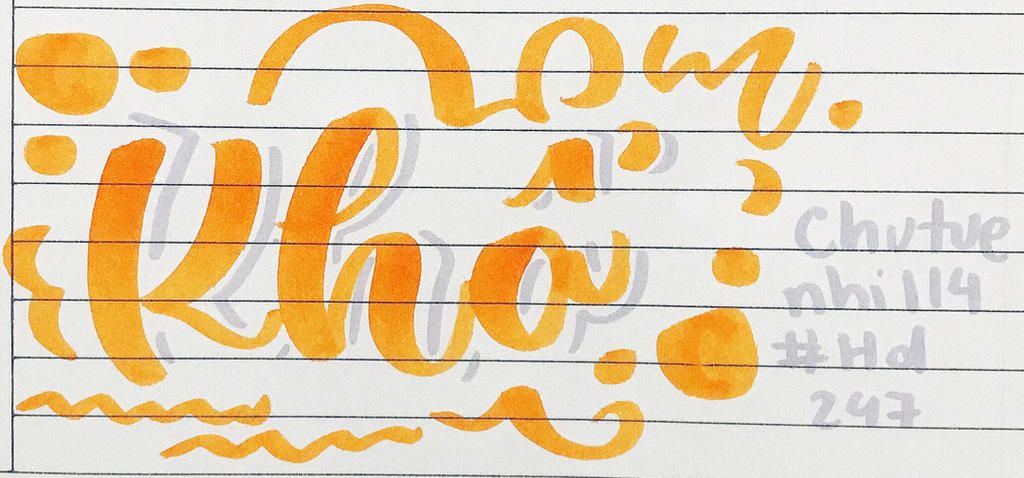 Khổ
Chutue
nhi114
#Hd
247